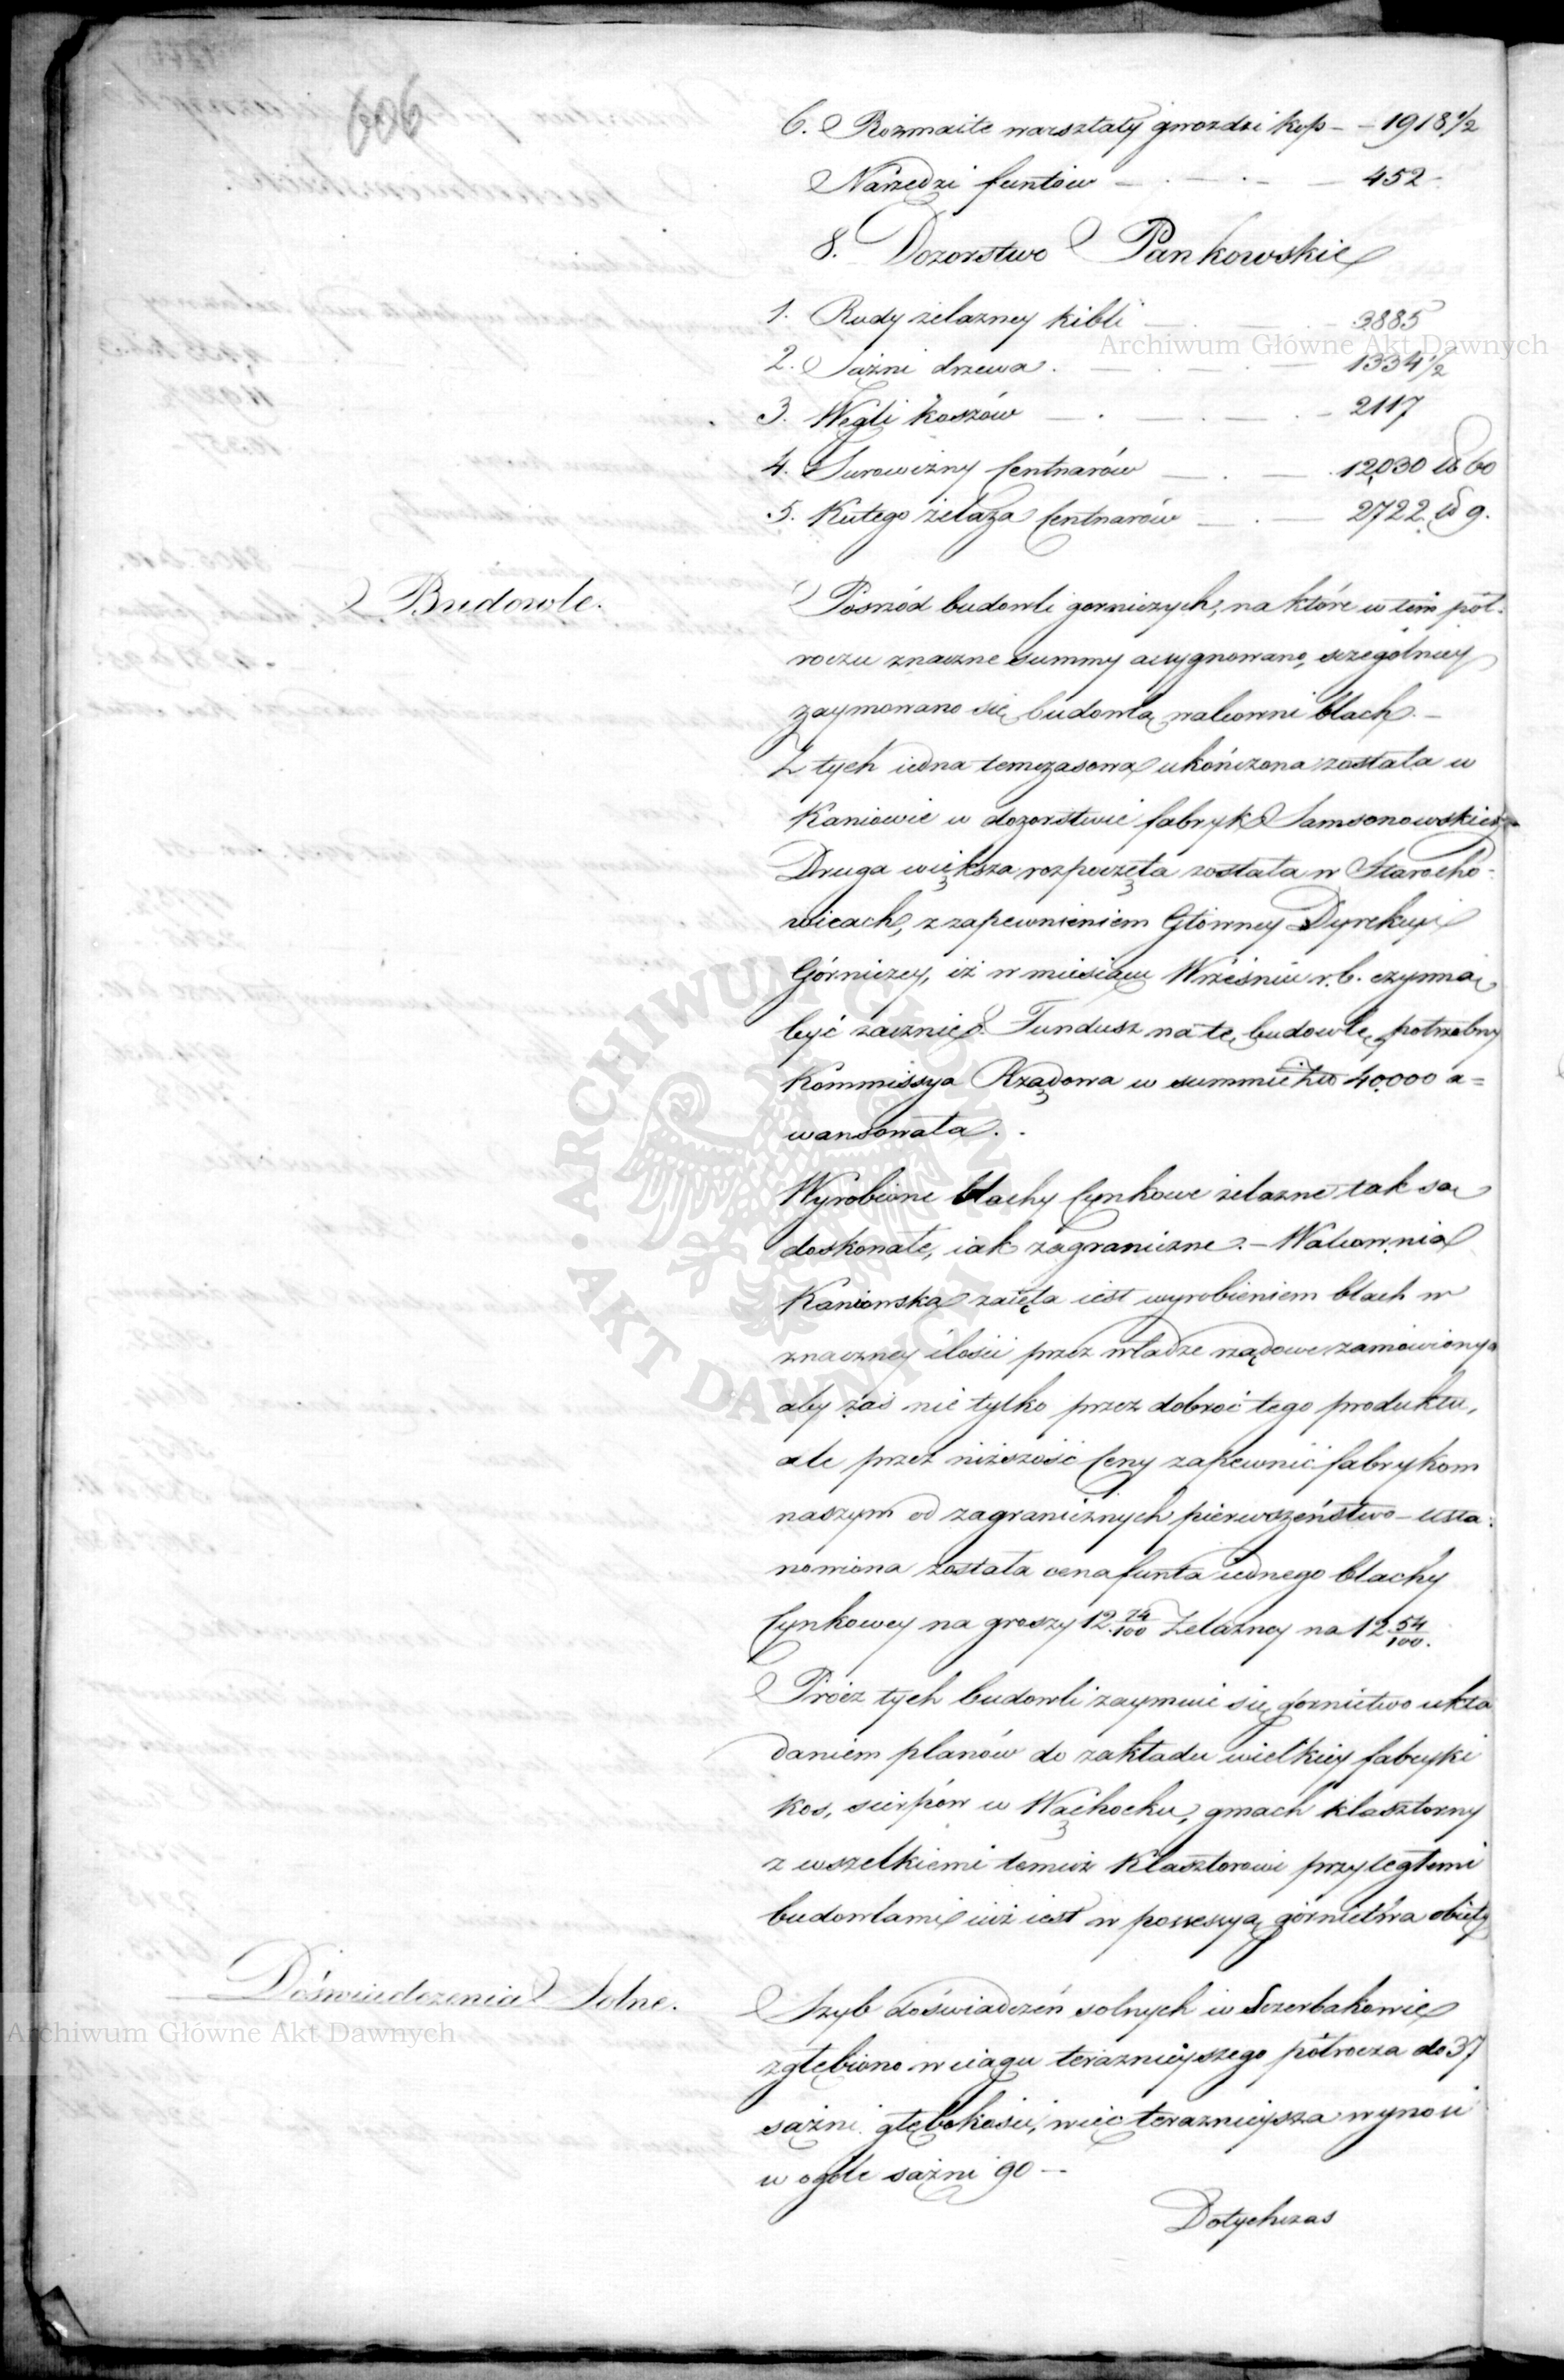 606
6. Rozmaite warsztaty gwozdzi kop - - 1918 1/2
Narzędzi funtow - . - . - 452 -
8. Dozorstwo Pankowskie
1. Rudy żelazney kibli - . - 3885
2. Sążni drzewa . - . - . - 1334 1/2
3. Węgli koszów - . - . - . - 2117
4. Surowizny Centnarów - . - 12,030 ℔ 60
5. Kutego żelaza Centnarów - . - 2722 ℔ 9.
Budowle.
Posrzód budowli gorniczych, na które w tem pół-
roczu znaczne summy assygnowano, szczególniey
zaymowano się budowlą walcowni blach. -
Z tych iedna temczasowa ukończona została w
Kaniowie w dozorstwie fabryk Samsonowskich
Druga większa rozpoczęta została w Starocho-
wicach, z zapewnieniem Główney Dyrekcyi
Górniczey, iż w miesiącu Wrześniu r. b. czynną
być zacznie. Fundusz na tę budowlę potrzebny
Kommissya Rządowa w summie złp 40,000 a=
wansowała. .
Wyrobione blachy Cynkowe żelazne tak są
doskonałe, iak zagraniczne. - Walcownia
Kaniowska zaięta iest wyrobieniem blach w
znaczney ilości przez władze rządowe zamówionych
aby zaś nie tylko przez dobroć tego produktu,
ale przez niższość Ceny zapewnić fabrykom
naszym od zagranicznych pierwszeństwo - usta-
nowiona została cena funta iednego blachy
Cynkowey na groszy 12 74/100 Żelazney na 12 54/100.
Prócz tych budowli zaymuie się górnictwo ukła
daniem planów do zakładu wielkiey fabryki
kos, sierpów w Wąchocku, gmach klasztorny
z wszelkiemi temuż Klasztorowi przyległemi
budowlami iuż iest w possessyą górnictwa obięty
Doświadczenia Solne.
Szyb doświadczeń solnych w Szczerbakowie
zgłębiono w ciągu teraznieyszego półrocza do 37
sążni głębokości, więc teraznieysza wynosi
w ogóle sążni 90 -
Dotychczas
Archiwum Główne Akt Dawnych
Archiwum Główne Akt Dawnych
ARCHIWUM GŁÓWNE • AKT DAWNYCH •